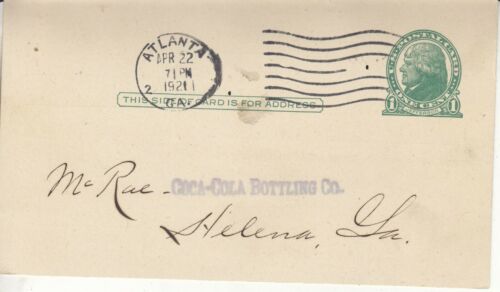 ATLANTA
APR 22
7 PM
2 1921
GA.
U.S. POSTAL CARD
1 ONE CENT 1
THIS SIDE OF CARD IS FOR ADDRESS
McRae - COCA-COLA BOTTLING CO.
Helena, Ga.